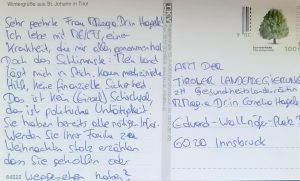 Wintergrüße aus St. Johann in Tirol
Sehr geehrte Frau Mag.a Dr.in Hagele!
Ich lebe mit ME/CFS, einer
Krankheit, die mir alles genommen hat.
Doch das Schlimmste: Mein Land
lässt mich im Stich. Keine medizinische
Hilfe, keine finanzielle Sicherheit.
Das ist kein (Einzel) Schicksal,
das ist politische Untätigkeit.
Sie haben bereits alle nötigen Infos.
Werden Sie Ihrer Familie zu
Weihnachten stolz erzählen
dass Sie geholfen oder
weggesehen haben?
64522
100
AMT DER
TIROLER LANDESREGIERUNG
z.H. Gesundheitslandesrätin
Mag.a Dr.in Cornelia Hagele
Eduard-Wallnöfer-Platz 3
6020 Innsbruck